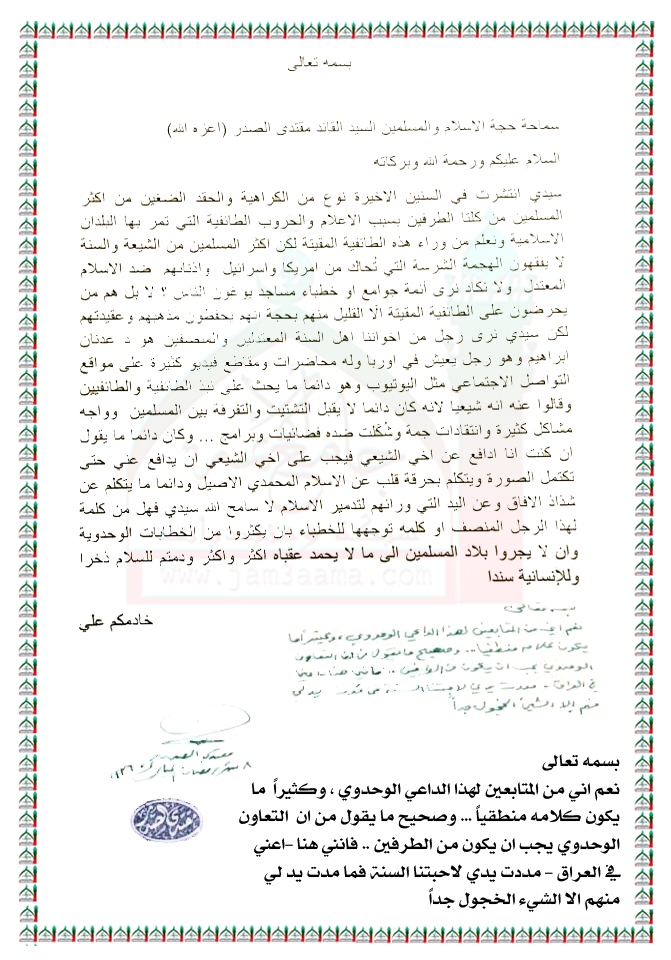 بسمه تعالى
سماحة حجة الاسلام والمسلمين السيد القائد مقتدى الصدر (اعزه الله)
السلام عليكم ورحمة الله وبركاته
سيدي انتشرت في السنين الاخيرة نوع من الكراهية والحقد الضغين من اكثر
المسلمين من كلتا الطرفين بسبب الاعلام والحروب الطائفية التي تمر بها البلدان
الاسلامية ونعلم من وراء هذه الطائفية المقيتة لكن اكثر المسلمين من الشيعة والسنة
لا يفقهون الهجمة الشرسة التي تُحاك من امريكا واسرائيل واذنابهم ضد الاسلام
المعتدل ولا نكاد نرى أئمة جوامع او خطباء مساجد يوعون الناس ؟ لا بل هم من
يحرضون على الطائفية المقيتة الّا القليل منهم بحجة انهم يحفضون مذهبهم وعقيدتهم
لكن سيدي نرى رجل من اخواننا اهل السنة المعتدلين والمنصفين هو د عدنان
ابراهيم وهو رجل يعيش في اوربا وله محاضرات ومقاطع فيديو كثيرة على مواقع
التواصل الاجتماعي مثل اليوتيوب وهو دائما ما يحث على نبذ الطائفية والطائفيين
وقالوا عنه انه شيعيا لانه كان دائما لا يقبل التشتيت والتفرقة بين المسلمين وواجه
مشاكل كثيرة وانتقادات جمة وشُكلت ضده فضائيات وبرامج ... وكان دائما ما يقول
ان كنت انا ادافع عن اخي الشيعي فيجب على اخي الشيعي ان يدافع عني حتى
تكتمل الصورة ويتكلم بحرقة قلب عن الاسلام المحمدي الاصيل ودائما ما يتكلم عن
شذاذ الافاق وعن اليد التي ورائهم لتدمير الاسلام لا سامح الله سيدي فهل من كلمة
لهذا الرجل المنصف او كلمه توجهها للخطباء بان يكثروا من الخطابات الوحدوية
وان لا يجروا بلاد المسلمين الى ما لا يحمد عقباه اكثر واكثر ودمتم للسلام ذخرا
وللإنسانية سندا
www.jam3aama.com
خادمكم علي
بسمه تعالى
نعم اني من المتابعين لهذا الداعي الوحدوي ، وكثيراً ما
يكون كلامه منطقياً ... وصحيح ما يقول من ان التعاون
الوحدوي يجب ان يكون من الطرفين .. فانني هنا – اعني
في العراق – مددت يدي لاحبتنا السنة فما مدت يد لي
منهم الا الشيء الخجول جداً
مقتدى الصدر
بسمه تعالى
نعم اني من المتابعين لهذا الداعي الوحدوي ، وكثيراً ما
يكون كلامه منطقياً ... وصحيح ما يقول من ان التعاون
الوحدوي يجب ان يكون من الطرفين .. فانني هنا –اعني
في العراق – مددت يدي لاحبتنا السنة فما مدت يد لي
منهم الا الشيء الخجول جداً